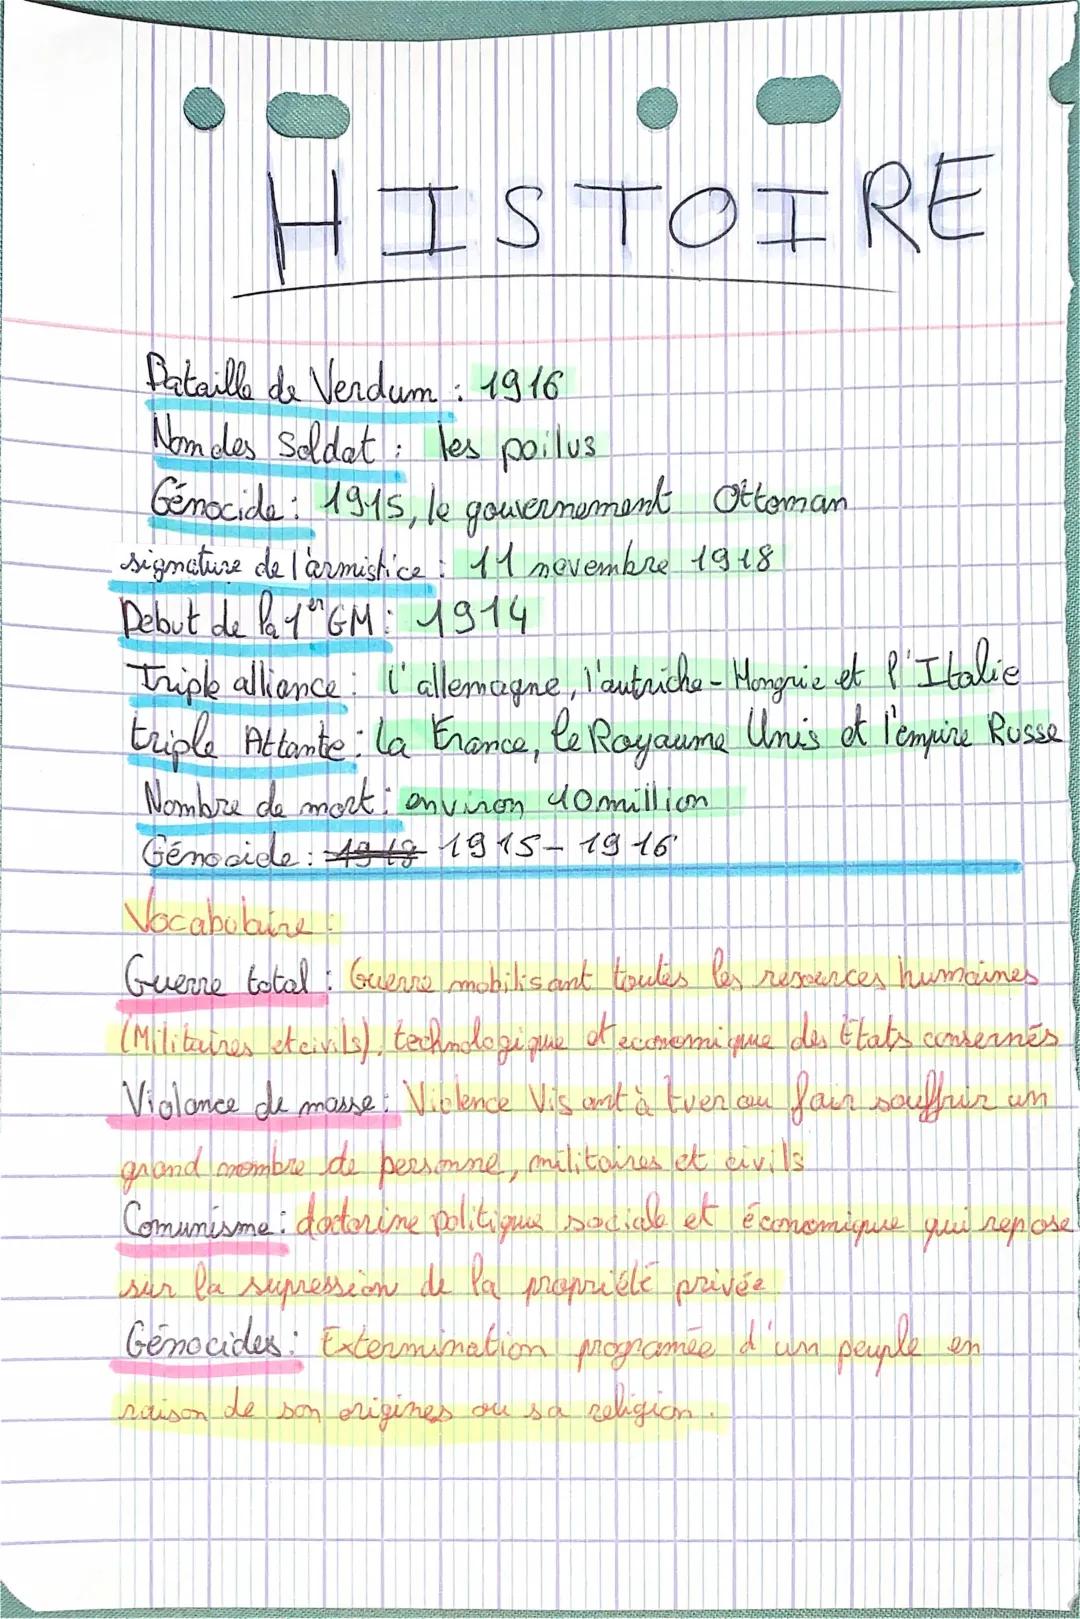 HISTOIRE
Bataille de Verdum : 1916
Nom des Soldat : les poilus
Génocide : 1915, le gouvernement Ottoman
signature de l'armistice : 11 novembre 1918
Debut de la 1er GM : 1914
Triple alliance : l'allemagne, l'autriche-Hongrie et l'Italie
triple Attante : la France, le Royaume Unis et l'empire Russe
Nombre de mort : environ 10 million
Génocide : 1915-1916
Vocabulaire :
Guerre total : Guerre mobilisant toutes les resources humaines
(Militaires et civils), technologique et economique des États consernés
Violance de masse : Violence Visant à tuer ou fair souffrir un
grand nombre de personne, militaires et civils
Comunisme : doctorine politique sociale et économique qui repose
sur la supression de la propriété privée
Génocides : Extermination programée d'un peuple en
raison de son origines ou sa religion.